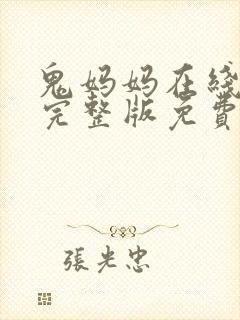 鬼妈妈在线
完整版免費
張光忠